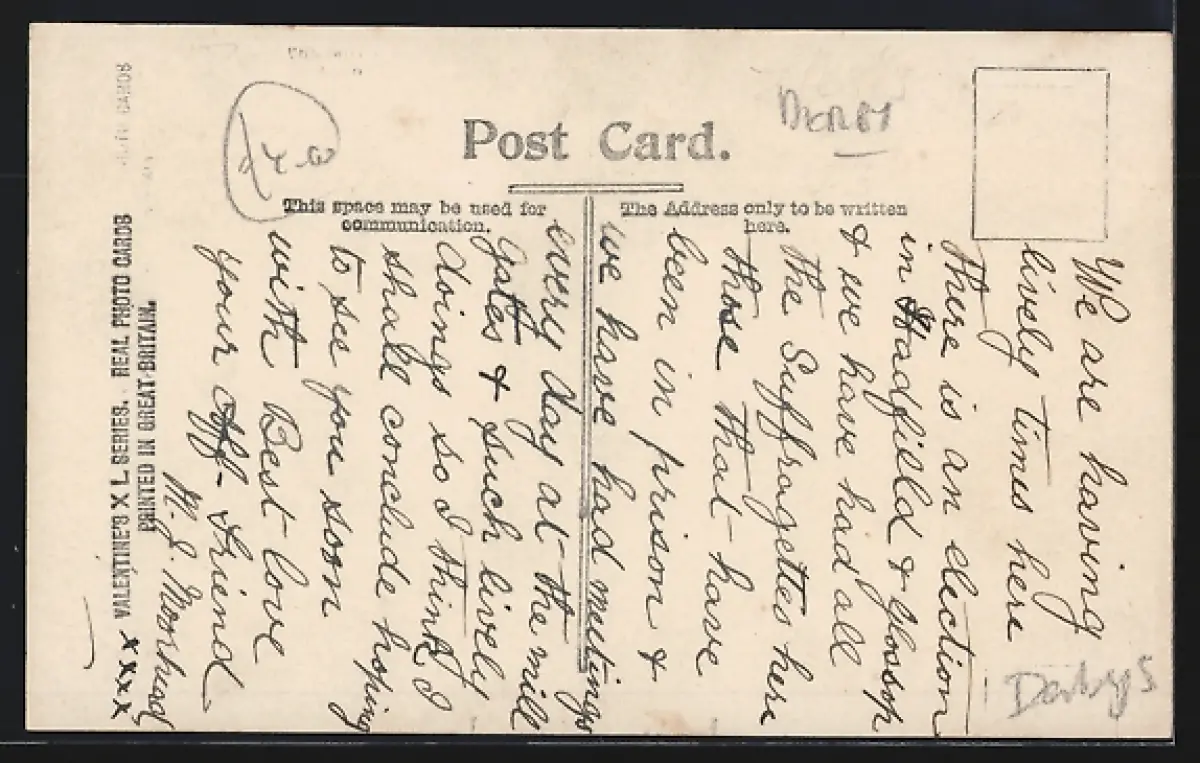 Post Card.
This space may be used for
communication.
The Address only to be written
here.
VALENTINE'S X L SERIES. REAL PHOTO CARDS
PRINTED IN GREAT BRITAIN.
We are having
lively times here
there is an election
in Hadfield & Glossop
& we have had all
the Suffragettes here
those that have
been in prison &
we have had meetings
every day at the mill
gates & such lively
doings so I think I
shall conclude hoping
to see you soon
with Best love
your aff- friend
M. J.
x x x x
Derbys